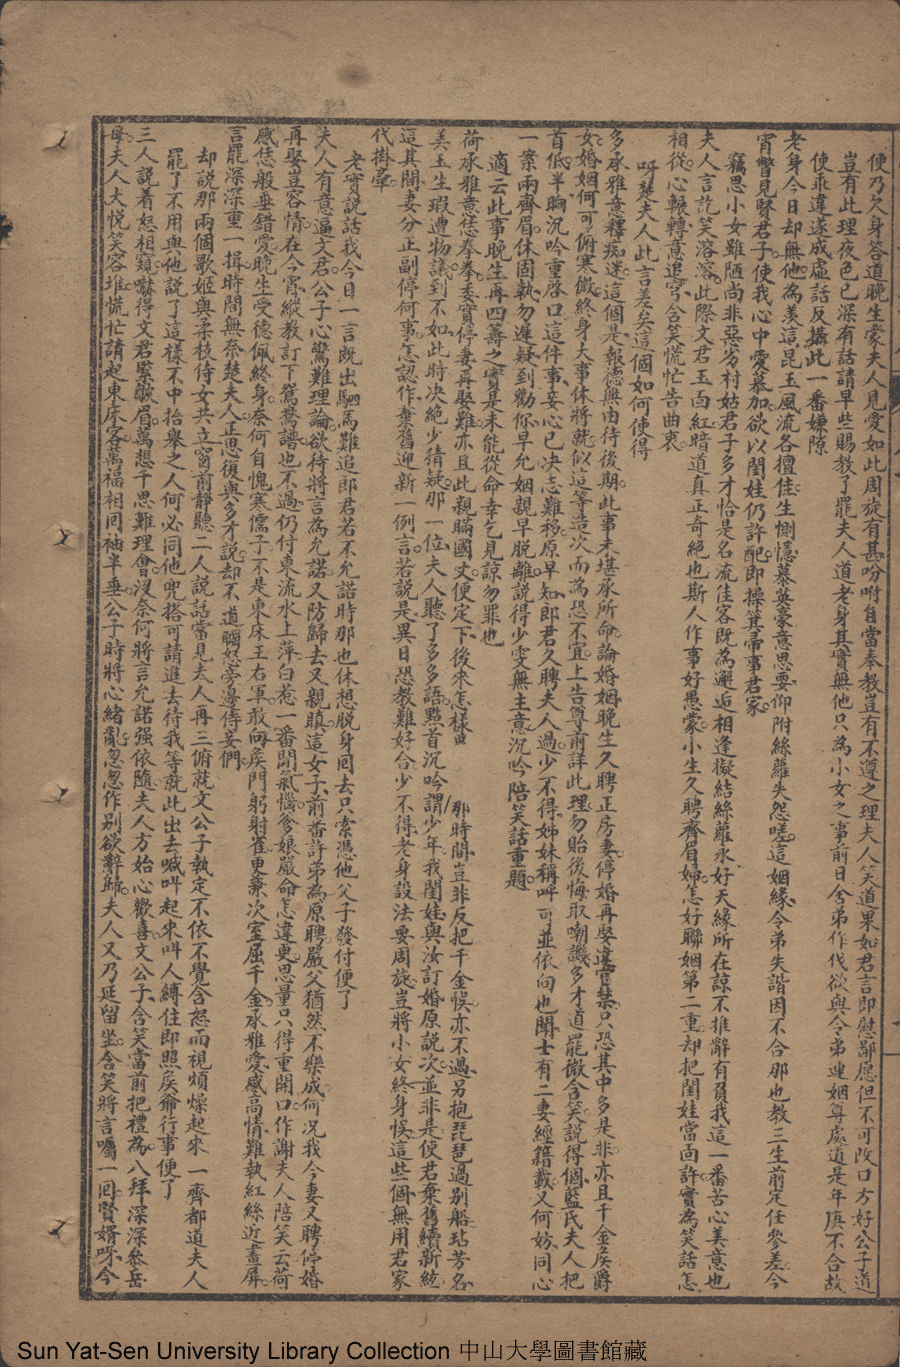 便乃欠身答道晚生蒙夫人見愛如此周旋有甚吩咐自當奉教豈有不遵之理夫人笑道果如君言即慰鄙愿但不可改口方好公子道
豈有此理夜色已深有話請早些賜教了罷夫人道老身其實無他只為小女之事前日舍弟作伐欲與令弟連姻尊處道是年庚不合故
使乖違遂成虛話反搆此一番嫌隙
老身今日却無他為羡這昆玉風流各擅佳生惻憶慕英豪意思要仰附絲蘿失怨嗟這姻緣令弟失諧因不合那也教三生前定任參差今
宵瞥見賢君子使我心中愛慕加欲以閨娃仍許配即操箕帚事君家
竊思小女雖陋尚非惡劣村姑君子多才恰是名流佳客既為邂逅相逢擬結絲蘿永好天緣所在諒不推辭有負我這一番苦心美意也
夫人言訖笑溶溶此際文君玉面紅暗道真正奇絕也斯人作事好愚蒙小生久聘齊眉婦怎好聯姻第二重却把閨娃當面許實為笑話怎
相從心轆轉意追穹含笑慌忙告曲衷
呀楚夫人此言差矣這個如何使得
多承雅意釋痴迷這個是報德無由待後期此事未堪承所命論婚姻晚生久聘正房妻停婚再娶違官禁只恐其中多是非亦且千金侯爵
女婚姻何可俯寒微終身大事休將就似這等造次而為恐不宜上告尊前詳此理勿貽後悔取嘲譏多才道罷微含笑說得個藍氏夫人把
首低半晌沉吟重啓口這件事妾心已决志難移原早知郎君久聘夫人過少不得姊妹稱呼可並依向也聞士有二妻經籍載又何妨同心
一案兩齊眉休固執勿遲疑到勸你早允姻親早脫離說得少雯無主意沉吟陪笑話重題
適云此事晚生再四籌之實是未能從命幸乞見諒勿罪也
荷承雅意恁拳拳委實停妻再娶難亦且此親瞞國丈便定下後來怎樣
那時間豈非反把千金悞亦不過另抱琵琶過別船玷芳名
美玉生瑕遭物議到不如此時决絕少猜疑那一位夫人聽了多多語點首沉吟謂少年我閨娃與汝訂婚原說次並非是使君棄舊續新絃
這其間妻分正副停何事怎認作棄舊迎新一例言若說是異日恐教難好合少不得老身設法要周旋豈將小女終身悞這些個無用君家
代掛牽
老實說話我今日一言既出駟馬難追郎君若不允諾時那也休想脫身回去只索憑他父子發付便了
夫人有意逼文君公子心驚難理論欲待將言為允諾又防歸去又親瞋這女子前番許弟為原聘嚴父猶然不樂成何况我今妻又聘停婚
再娶豈容情在今宵縱教訂下鴛鴦譜也不過仍付東流水上萍白惹一番閒氣惱爹娘嚴命怎違更思量只得重開口作謝夫人陪笑云荷
感恁般垂錯愛晚生受德佩終身奈何自愧寒儒子不是東床王右軍敢向侯門躬射雀更兼次室屈千金承雅愛感高情難執紅絲近畫屏
言罷深深重一揖時間無奈楚夫人正思復與多才說却不道嗔怒旁邊侍妾們
却說那兩個歌姬與柔枝侍女共立窗前靜聽二人說話當見夫人再三俯就文公子執定不依不覺含怒而視煩燥起來一齊都道夫人
罷了不用與他說了這樣不中抬舉之人何必同他兜搭可請進去待我等就此出去喊叫起來叫人縛住即照侯爺行事便了
三人說着怒相窺嚇得文君緊皺眉萬想千思難理會沒奈何將言允諾强依隨夫人方始心歡喜文公子含笑當前把禮為八拜深深參岳
母夫人大悦笑容堆慌忙請起東床客萬福相同袖半垂公子時將心緒亂忽忽作别欲辭歸夫人又乃延留坐含笑將言囑一回賢婿呀今
Sun Yat-Sen University Library Collection 中山大學圖書館藏